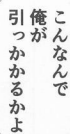 こんなんで
俺が
引っかかるかよ